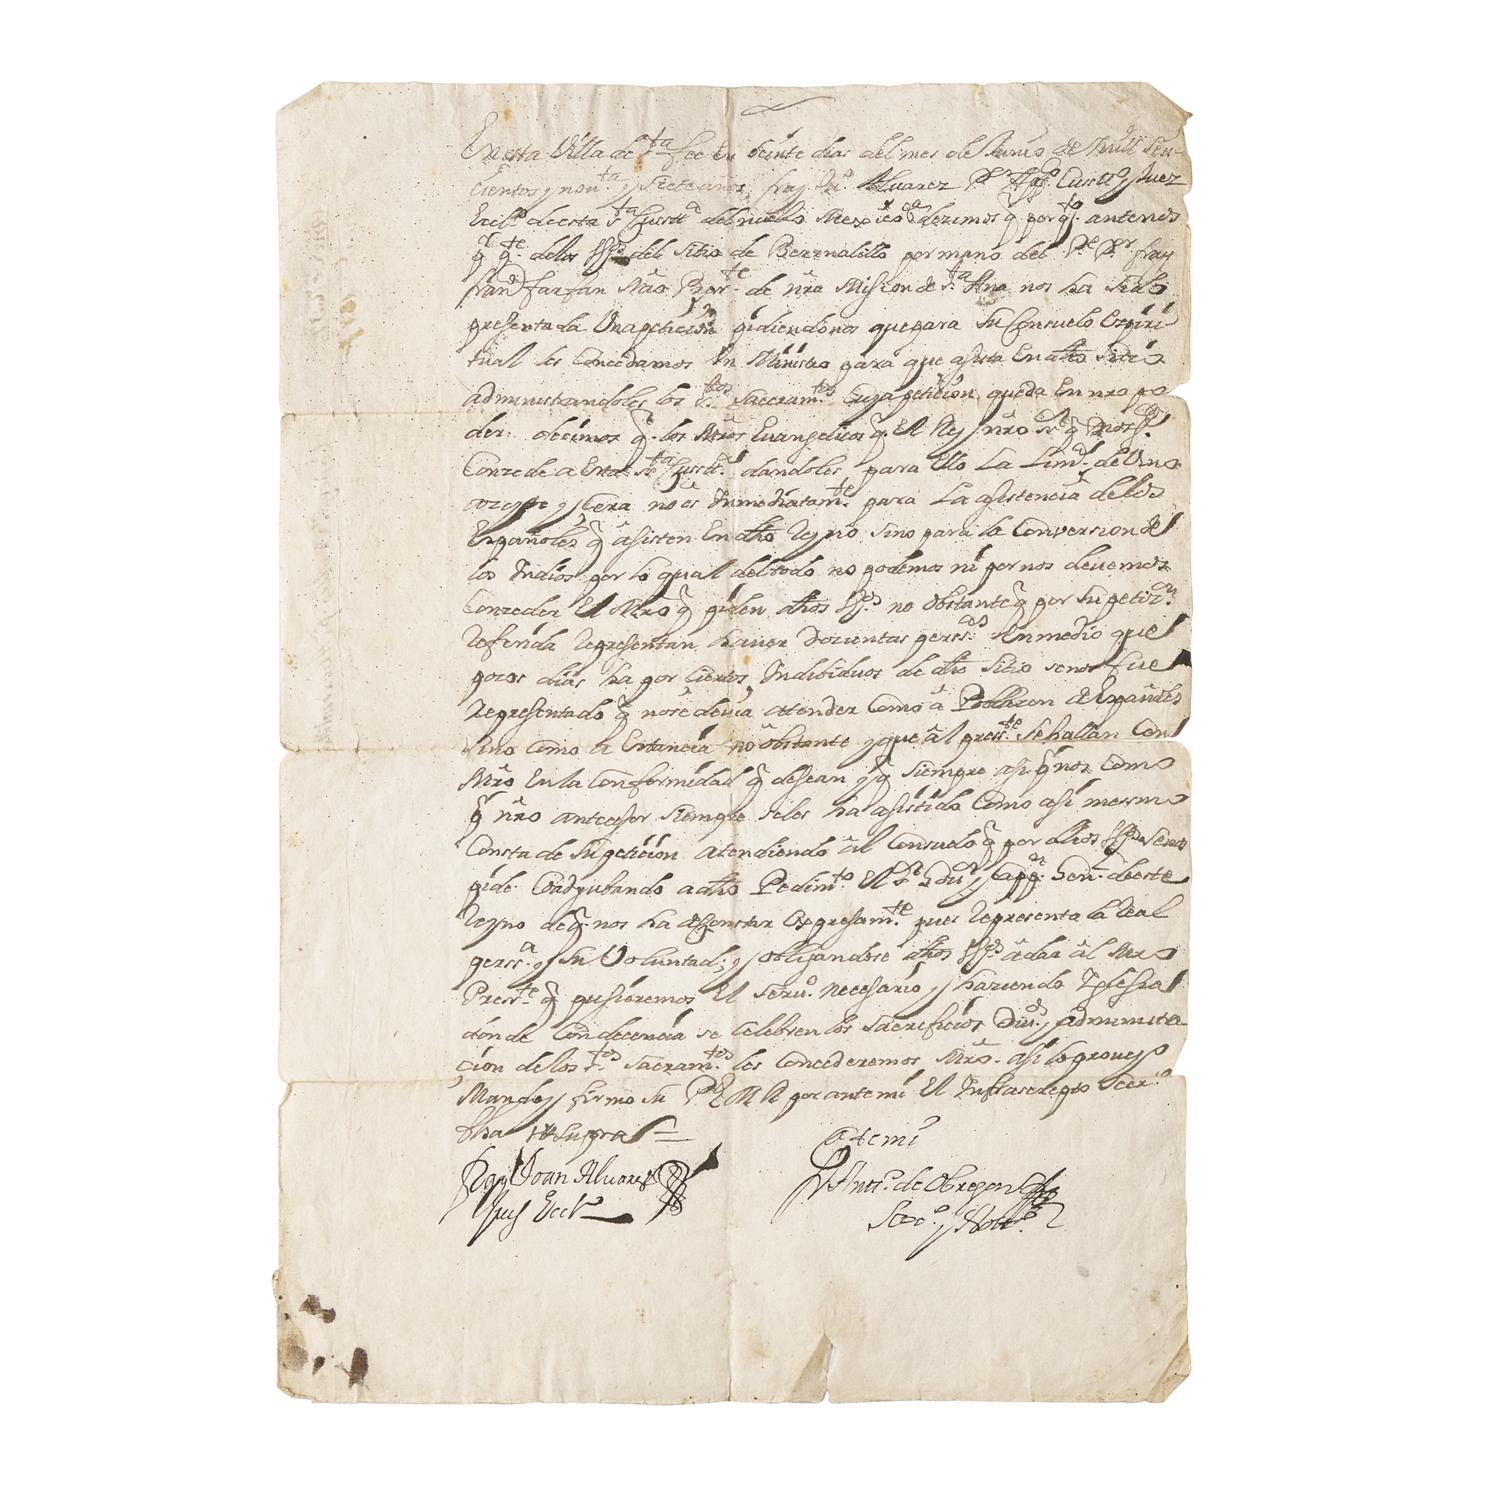 En esta Villa de Sta fee en beinte dias del mes de Junio de mill seis
cientos y nouta y siete años, fray Juo Alvarez Pr Custo y Juez
Ecclo de esta sta Custa del nuebo Mexico &a dezimos q por qto antenos
q pte de los de el sitio de Bernalillo por mano del Pe Pr fray
franco farfan Mro Parte de nra Mission de Sta Ana nos ha sido
presentada Una peticion pidiendonos que para su Consuelo Espiri
tual les Concedamos Un Ministro para que asista En dho sitio
administrandoles los Stos Sacramtos Cuya peticion queda En nro po
der: decimos q los Mros Euangelicos q El Rey nro sr q Dios ge
Conzede a Esta sta Custa dandoles para Ello La Limosa de Vino
azeyte y Cera no es Inmediatamte para La asistencia de los
Españoles q asisten En dho Reyno sino para la Conversion de
los Indios por lo qual del todo no podemos ni por nos devemos
Conzeder El Mro q piden dhos no obstante q por su petizon
referida representan haver Dozientas persas En medio que
pocos dias ha por Ciertos Individuos de dho sitio se nos fue
representado q no se devia atender Como a Poblazon de Españoles
sino Como a Estancia no obstante y que al preste se hallan Con
Mro En la Conformidad q desean y q siempre asi q nos Como
q nro antecesor siempre se les ha asistido Como asi mesmo
Consta de su peticion atendiendo al Consuelo q por dhos se nos
pide Coadyubando a dho Pedimto El Sr Gour y Capn Genl de este
Reyno de q nos ha de Constar Expresamte pues representa la Real
persa y su Voluntad; y obligandose dhos a dar al Mro
Preste q pusieremos El seruo necesario y haziendo Iglesia
donde Con decencia se Celebren los sacrificios Diuos y administra
cion de los Stos sacramtos les Concederemos Mro asi lo proueyo
Mando y firmo su P M R por ante mi El Infrascripto Secro
fha Vt supra
Fray Joan Alvarez
Juez Eccco
Ante mi
Fr Anto de Obregon
Seco y Notto